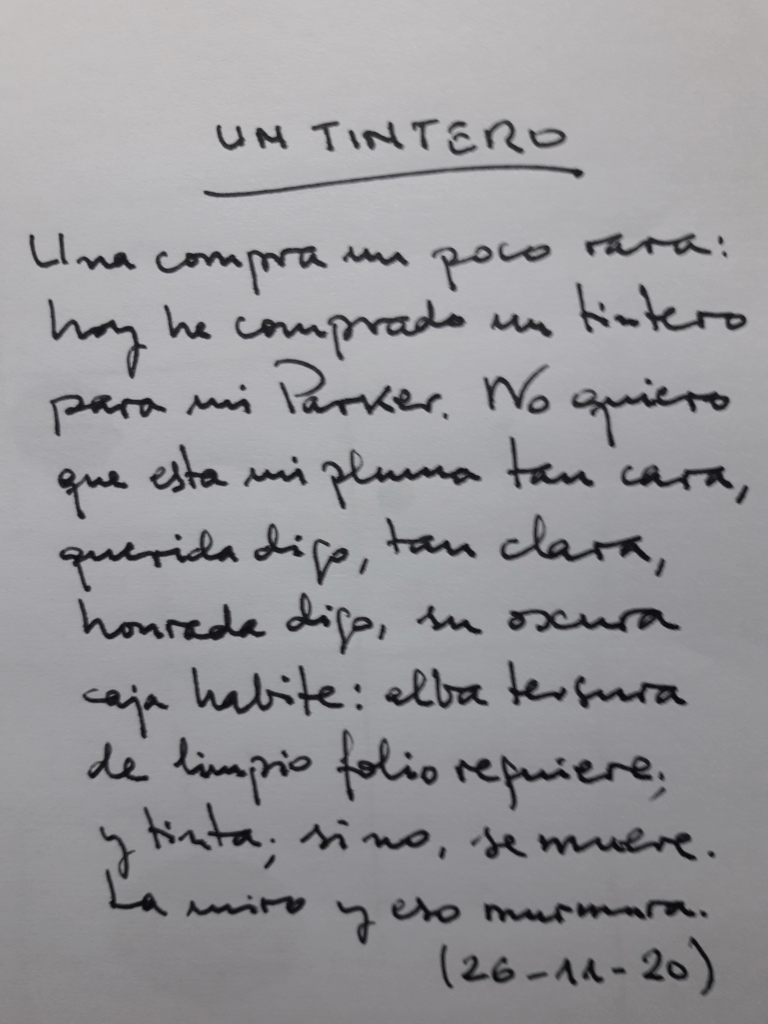 UN TINTERO
Una compra un poco rara:
hoy he comprado un tintero
para mi Parker. No quiero
que esta mi pluma tan cara,
querida digo, tan clara,
honrada digo, su oscura
caja habite: alba tersura
de limpio folio requiere;
y tinta; si no, se muere.
La miro y eso murmura.
(26-11-20)